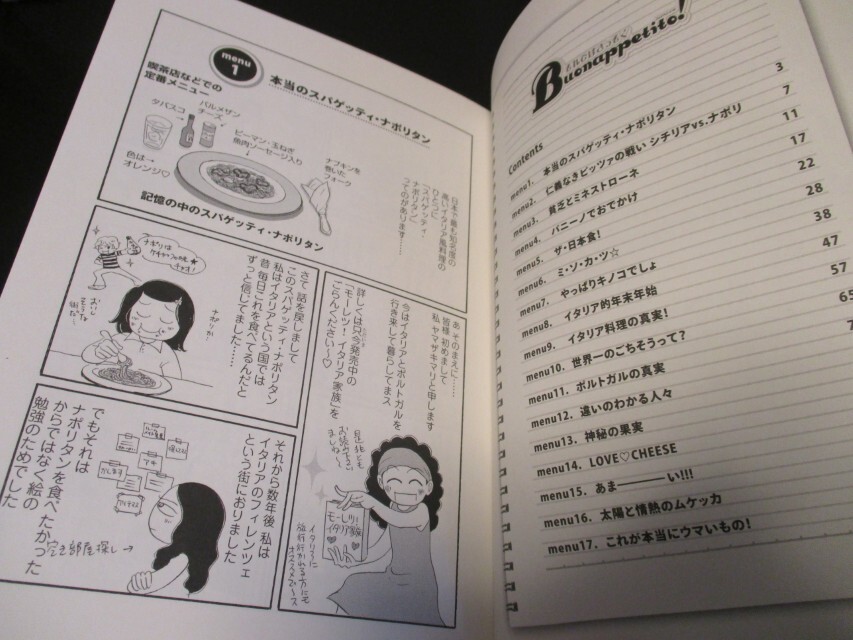 menu
1
本当のスパゲッティ・ナポリタン
喫茶店などでの
定番メニュー
タバスコ
パルメザン
チーズ
ピーマン・玉ねぎ
魚肉ソーセージ入り
ナフキンを
巻いた
フォーク
色は→
オレンジ♡
記憶の中のスパゲッティ・ナポリタン
日本で最も知名度の
高いイタリア風料理の
ひとつに
「スパゲッティ・
ナポリタン」
ってのがあります……
あ そのまえに……
皆様 初めまして
私 ヤマザキマリと申します
今はイタリアとポルトガルを
行き来して暮らしてまス
詳しくは只今発売中の
「モーレツ!イタリア家族」を
ごらんください〜♡
是非とも
お読み下さい
ましね〜
モーレツ!
イタリア家族
イタリアに
旅行行かれる方にも
オススメで〜ス
さて 話を戻しまして
このスパゲッティ・ナポリタン
私はイタリアという国では
昔 毎日これを食べてるんだと
ずっと信じてました……
ナポリは
ナポリか
それから数年後 私は
イタリアのフィレンツェ
という街におりました
空き部屋探し→
でもそれは
ナポリタンを食べたかった
からではなく 絵の
勉強のためでした
Buonappetito!
Contents
menu1. 本当のスパゲッティ・ナポリタン 3
menu2. 仁義なきピッツァの戦い シチリアvs.ナポリ 7
menu3. 貧乏とミネストローネ 11
menu4. パニーノでおでかけ 17
menu5. ザ・日本食! 22
menu6. ミ・ソ・カ・ツ☆ 28
menu7. やっぱりキノコでしょ 38
menu8. イタリア的年末年始 47
menu9. イタリア料理の真実! 57
menu10. 世界一のごちそうって? 65
menu11. ポルトガルの真実
menu12. 違いのわかる人々
menu13. 神秘の果実
menu14. LOVE♡CHEESE
menu15. あま———い!!!
menu16. 太陽と情熱のムケッカ
menu17. これが本当にウマいもの!